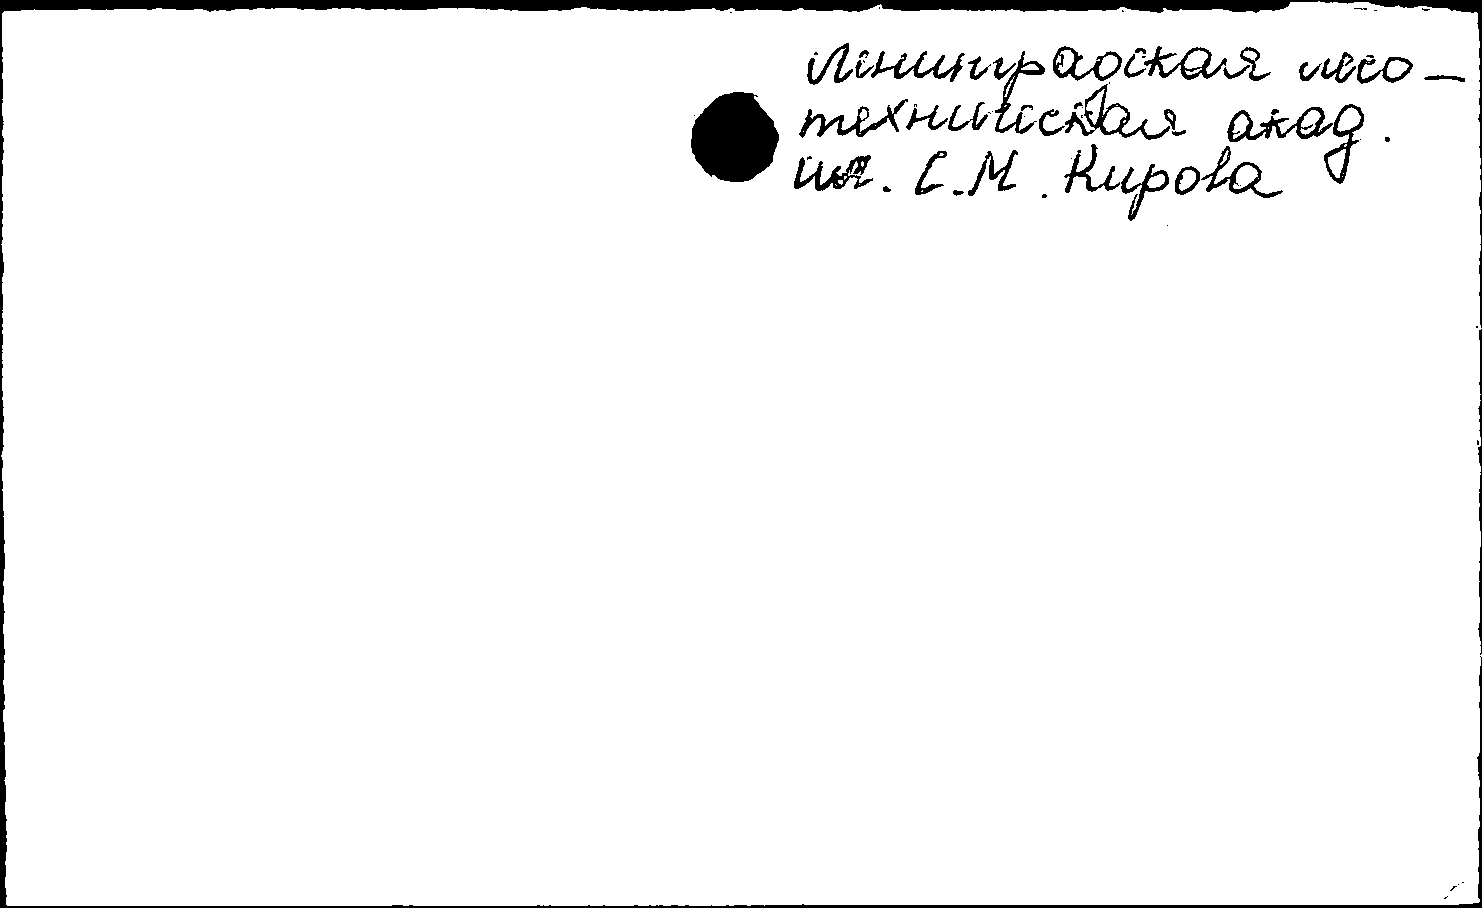 Ленинградская лесо-
техническая акад.
им. С.М. Кирова